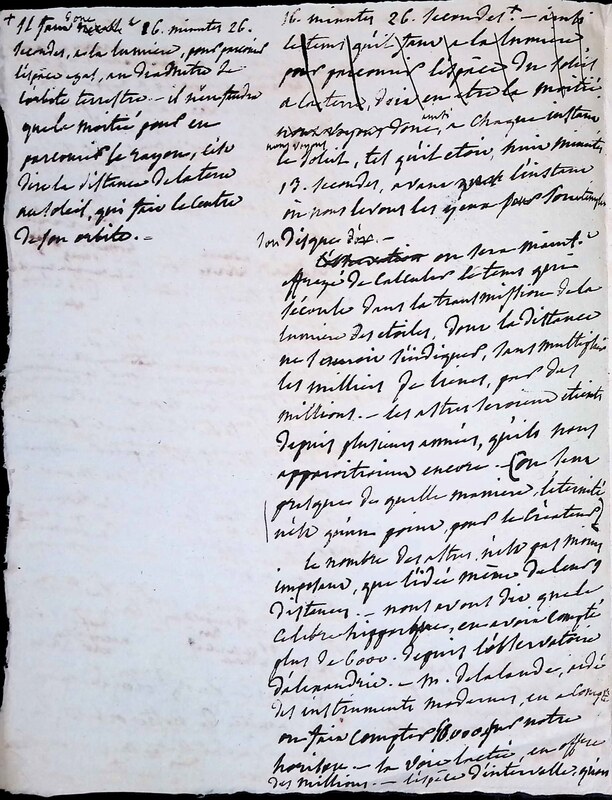 + il faut donc 16. minutes 26.
secondes, a la lumiere, pour parcourir
l'espace egal, au diametre de
l'orbite terrestre — il n'en faudra
que la moitié pour en
parcourir le rayon, c'est a
dire la distance de la terre
au soleil, qui fait le centre
de son orbite. —
16. minutes 26. secondes. — ainsi
le tems qu'il faut a la lumiere
pour parcourir l'espace du soleil
a la terre, doit en etre la moitié
nous voyons donc, a chaque instant
nous voyons
le soleil, tel qu'il etoit, huit minutes
13. secondes, avant l'instant
ou nous levons les yeux
son disque —
on sera
effrayé de calculer le tems qui
s'écoule dans la transmission de la
lumiere des etoiles, dont la distance
ne s'indiquer, sans multiplier
les milliers de lieues, par des
millions. — les astres seroient eteints
depuis plusieurs années, qu'ils nous
apparoitroient encore — (on sent
presque de quelle maniere, l'eternité
n'est qu'un point, pour le Créateur)
le nombre des astres, n'est pas moins
imposant, que l'idée même de leurs
distances. — nous avons dit que le
celebre hipparque, en avoit compté
plus de 6000. depuis l'observatoire
d'alexandrie. — m. delalande, aidé
des instruments modernes, en a compté
on fait compter sur notre
horison — la voie lactée, en offre
des millions. — l'espace d'intervalle, qu'on